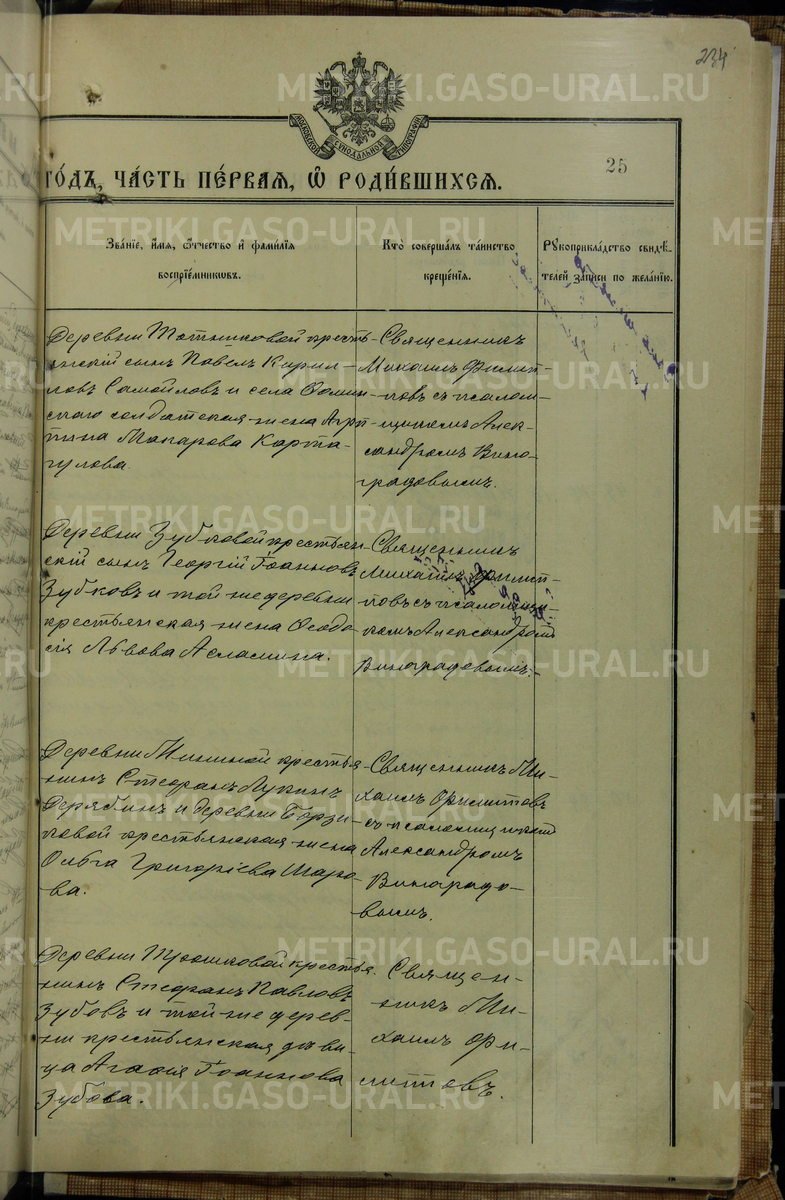 234
МОСКОВСКОЙ СѴНОДАЛЬНОЙ ТИПОГРАФІИ
25
ГО́ДЪ, ЧА́СТЬ ПЕ́РВАЯ, Ѡ РОДИ́ВШИХСЯ.
Зва́нїе, и́мя, ѻ́тчество и҆ фами́лїя
воспрїе́мниковъ.
Кто̀ соверша́лъ та́инство
креще́нїя.
Рꙋкоприкла́дство свидѣ́-
телей за́писи по жела́нїю.
Деревни Тотниковой кресть-
янскій сынъ Павелъ Кирил-
ловъ Самойловъ и села
солдатская жена Агрип-
пина Макарова Карта-
гулова.
Священникъ
Михаилъ Филип-
повъ съ псалом-
щикомъ Алек-
сандромъ Вино-
градовымъ.
Деревни Зубковой крестьян-
скій сынъ Георгій Іоанновъ
Зубковъ и той же деревни
крестьянская жена Ѳеодо-
сія Львова Асламина.
Священникъ
Михаилъ Филип-
повъ съ псаломщи-
комъ Александромъ
Виноградовымъ.
Деревни Мининой крестья-
нинъ Стефанъ Лукинъ
Дерябинъ и деревни
крестьянская жена
Ольга Григоріева Шаро-
ва.
Священникъ Ми-
хаилъ Филипповъ
съ псаломщикомъ
Александромъ
Виноградо-
вымъ.
Деревни Трошковой крестья-
нинъ Стефанъ Павловъ
Зубовъ и той же дерев-
ни крестьянская дѣви-
ца Агафія Іоаннова
Зубова.
Священ-
никъ Ми-
хаилъ Фи-
липповъ.
METRIKI.GASO-URAL.RU